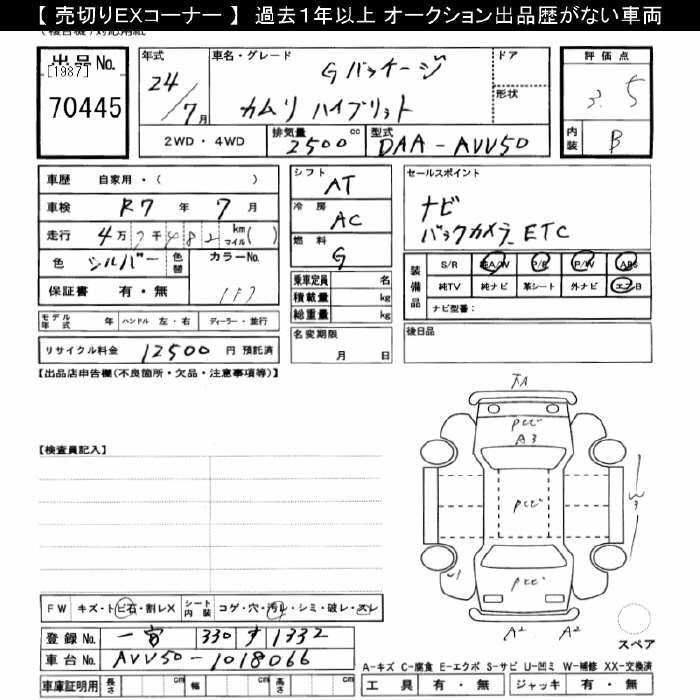 【 売切りEXコーナー 】 過去１年以上 オークション出品歴がない車両
出品No.
[1987]
70445
年式
24/7月
車名・グレード
Gパッケージ
カムリ ハイブリット
ドア
形状
評価点
3.5
内装 B
2WD・4WD
排気量 2500 cc
型式 DAA-AVV50
車歴 自家用・( )
車検 R7年 7月
走行 4万7千482 km マイル( )
色 シルバー 色替
カラーNo.
保証書 有・無
シフト AT
冷房 AC
燃料 G
乗車定員 名
積載量 kg
総重量 kg
セールスポイント
ナビ
バックカメラ ETC
装備品
S/R 純A/W P/S P/W ABS
純TV 純ナビ 革シート 外ナビ エアB
ナビ型番：
モデル年式 年 ハンドル 左・右 ディーラー・並行
名変期限
月 日
後日品
リサイクル料金 12500 円 預託済
【出品店申告欄(不良箇所・欠品・注意事項等)】
【検査員記入】
A3
W3
FW キズ・トビ石・割レX シート内装 コゲ・穴・汚レ・シミ・破レ・スレ
登録No. 一宮 330 す 1332
車台No. AVV50-1018066
車庫証明用 長さ cm 幅 cm 高さ cm
A2 A2
スペア
A-キズ C-腐食 E-エクボ S-サビ U-凹ミ W-補修 XX-交換済
工具 有・無 ジャッキ 有・無